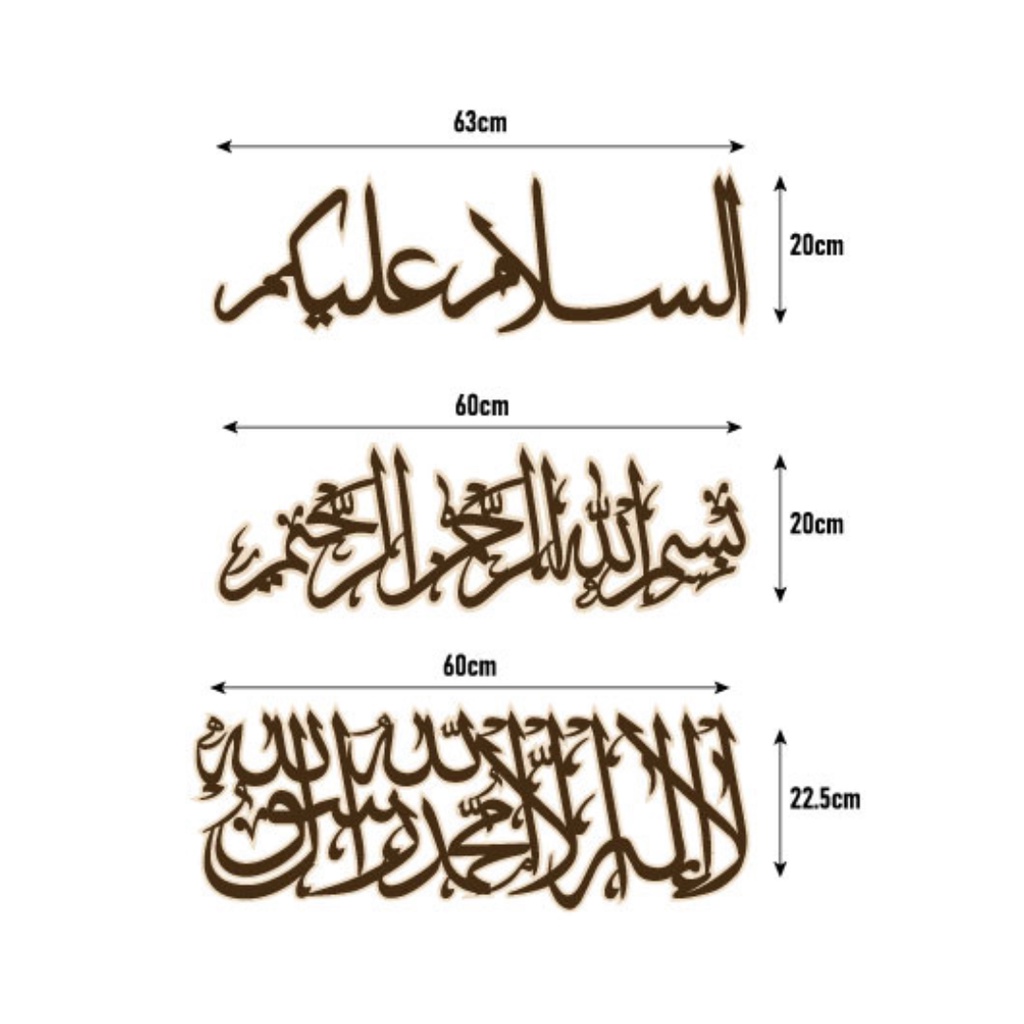 63cm
السلام عليكم
20cm
60cm
بسم الله الرحمن الرحيم
20cm
60cm
لا إله إلا الله محمد رسول الله
22.5cm